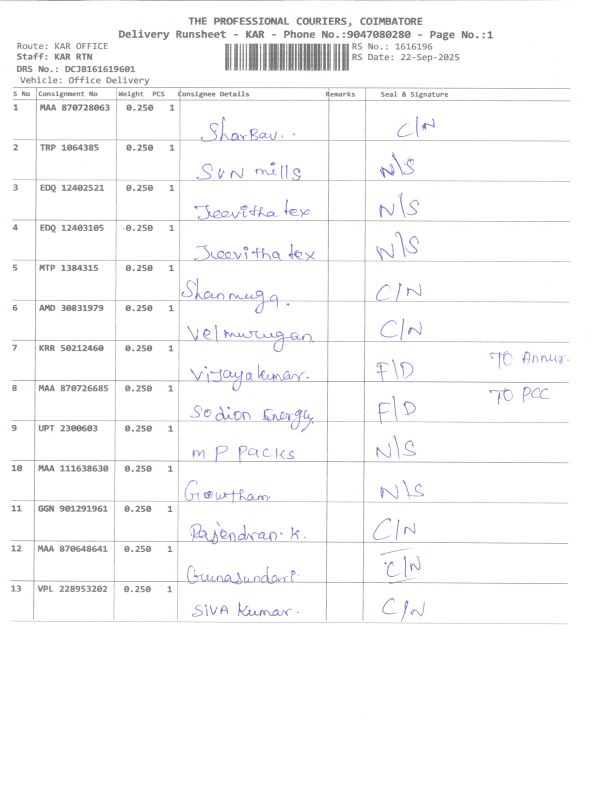 THE PROFESSIONAL COURIERS, COIMBATORE
Delivery Runsheet - KAR - Phone No.:9047080280 - Page No.:1
Route: KAR OFFICE RS No.: 1616196
Staff: KAR RTN RS Date: 22-Sep-2025
DRS No.: DCJB161619601
Vehicle: Office Delivery
S No Consignment No Weight PCS Consignee Details Remarks Seal & Signature
1 MAA 870728063 0.250 1
C/N
2 TRP 1064385 0.250 1
SUN mills N/S
3 EDQ 12402521 0.250 1
Jeevitha tex N/S
4 EDQ 12403105 0.250 1
Jeevitha tex N/S
5 MTP 1384315 0.250 1
Shanmuga. C/N
6 AMD 30831979 0.250 1
Velmurugan C/N
7 KRR 50212460 0.250 1
Vijayakumar. F/D TO Annur.
8 MAA 870726685 0.250 1
Sodion Energy F/D TO PCC
9 UPT 2300603 0.250 1
M P Packs N/S
10 MAA 111638630 0.250 1
Growtham N/S
11 GGN 901291961 0.250 1
Rajendran.K. C/N
12 MAA 870648641 0.250 1
Gunasundari C/N
13 VPL 228953202 0.250 1
SIVA Kumar. C/N